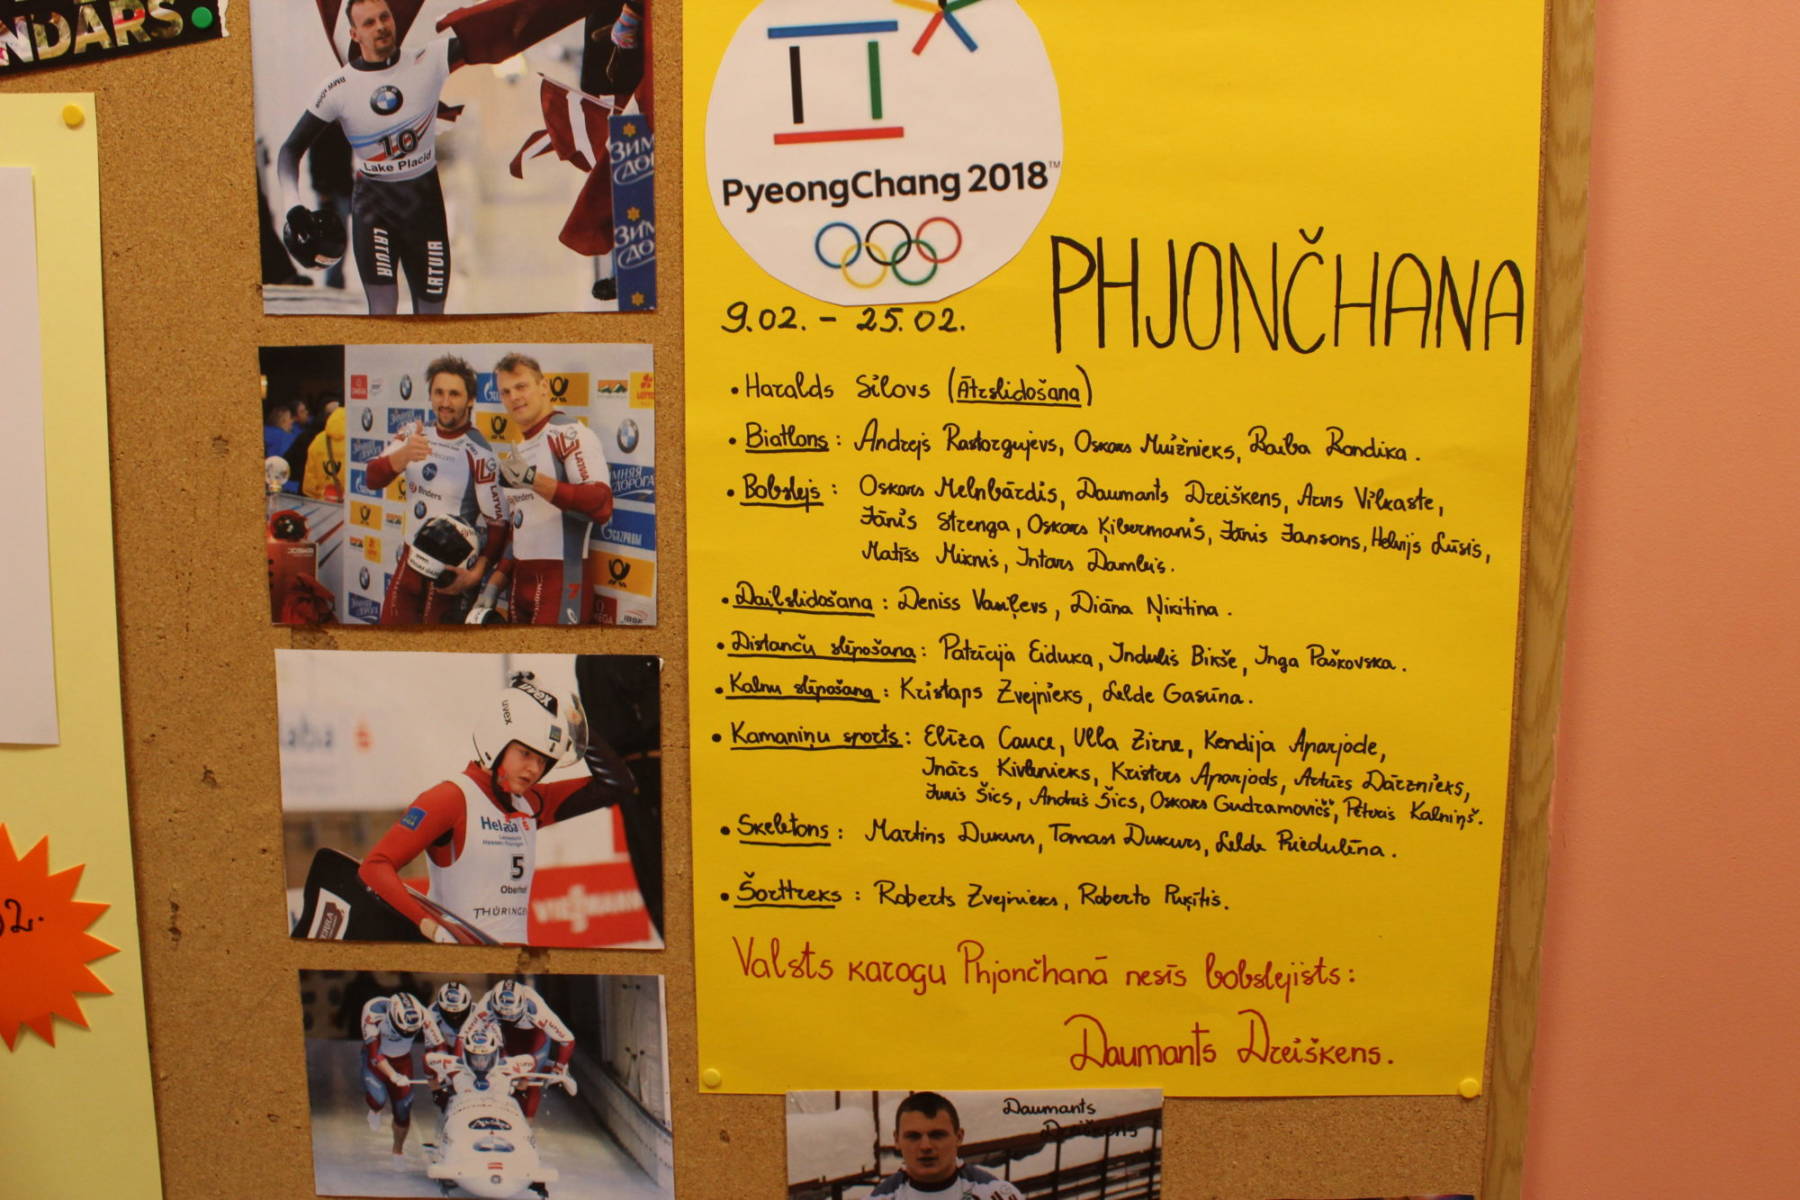 NDARS
BMW
10
Lake Placid
LATVIA
LATVIA
ЗИМ
ДО
ЗИМ
ДО
PyeongChang 2018™
PHJONČHANA
9.02. - 25.02.
• Haralds Silovs (Ātrslidošana)
• Biatlons: Andrejs Rastorgujevs, Oskars Muižnieks, Baiba Bendika.
• Bobslejs: Oskars Melnbārdis, Daumants Dreiškens, Arvis Vilkaste,
Jānis Strenga, Oskars Ķibermanis, Jānis Jansons, Helvijs Lūsis,
Matīss Miknis, Intars Dambis.
• Daiļslidošana: Deniss Vasiļevs, Diāna Ņikitina.
• Distanču slēpošana: Patrīcija Eiduka, Indulis Bikše, Inga Paškovska.
• Kalnu slēpošana: Kristaps Zvejnieks, Lelde Gasūna.
• Kamaniņu sports: Elīza Cauce, Ulla Zirne, Kendija Aparjode,
Inārs Kivlenieks, Kristers Aparjods, Artūrs Dārznieks,
Juris Šics, Andris Šics, Oskars Gudramovičs, Pēteris Kalniņš.
• Skeletons: Martins Dukurs, Tomass Dukurs, Lelde Priedulēna.
• Šorttreks: Roberts Zvejnieks, Roberto Puķītis.
Valsts karogu Phjončhanā nesīs bobslejists:
Daumants Dreiškens.
GAZPROM
LATVIA
uvex
5
Oberhof
THÜRINGEN
VIESSMANN
02.
Daumants
Dreiškens